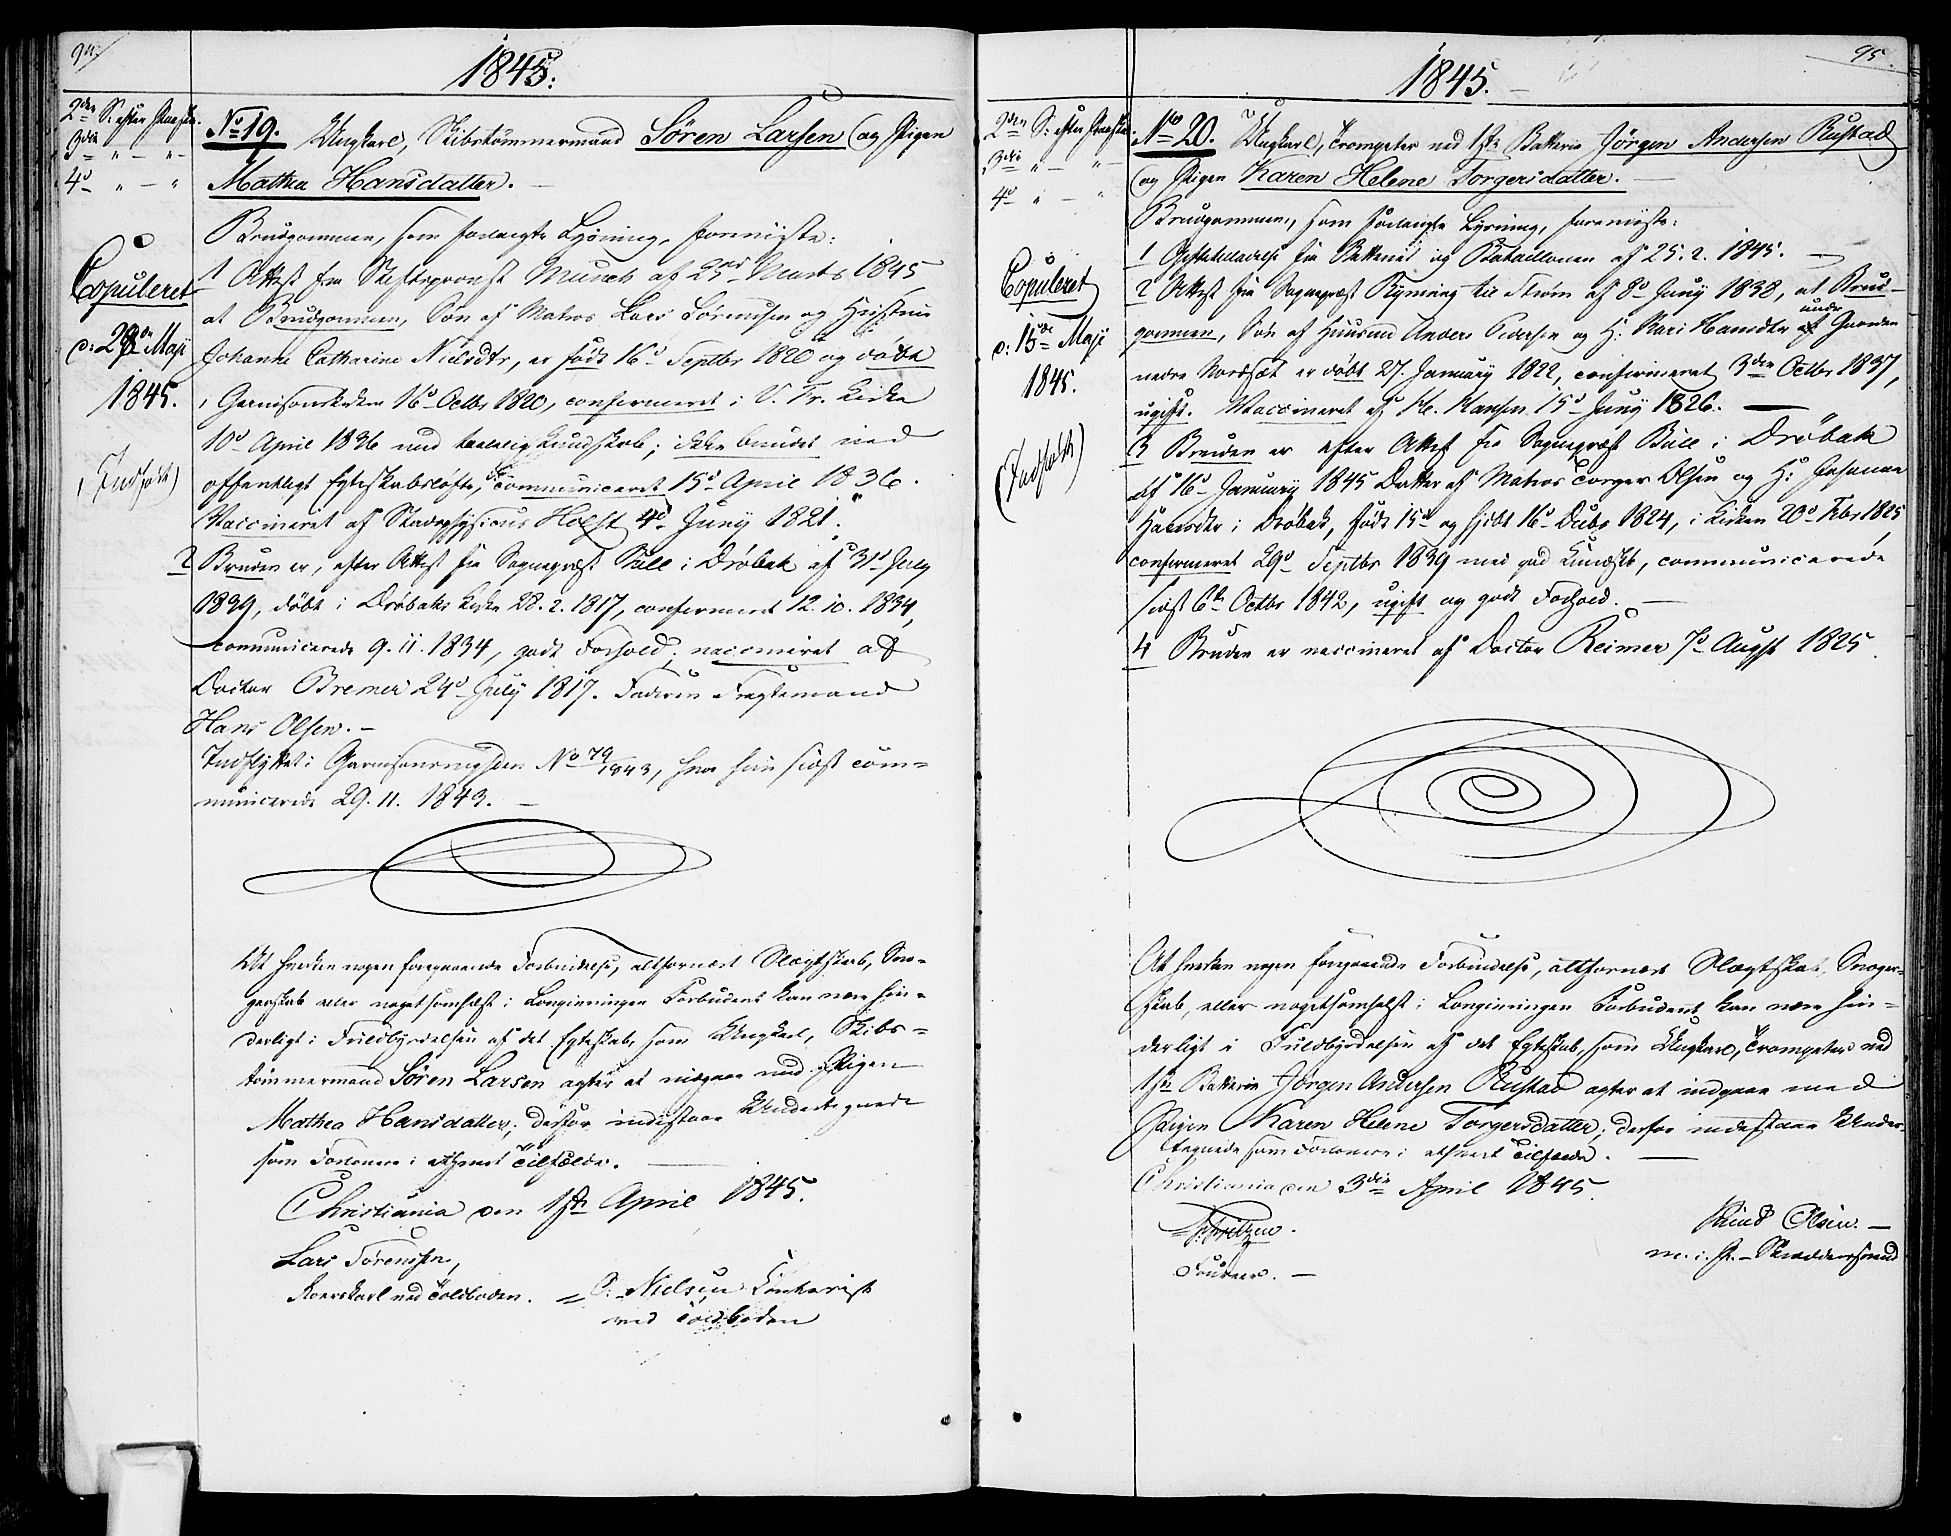 94.
1845.
2den S. efter Paaske.
3die " — "
4d " — "
No 19. Ungkarl, Skibstømmermand Søren Larsen og Pigen
Mathea Hansdatter. —
Brudgommen, som forlangte Lysning, foreviiste:
1 Attest fra Stiftsprovst Munch af 23d Marts 1845
at Brudgommen, Søn af Matros Lars Sørensen og Hustrue
Johanne Cathrine Nielsdtr, er født 16d Septbr 1820 og døbt
i Garnisonskirken 16d Octbr 1820, confirmeret i V. Fr. Kirke
10d April 1836 med taalelig Kundskab; ikke bundet ved
offentligt Egteskabsløfte, communiceret 15d April 1836.
Vaccineret af Stadsphysicus Holst 4d Juny 1821.
2 Bruden er, efter Attest fra Sognepræst Bull i Drøbak af 31d July
1839, døbt i Drøbaks Kirke 28.2.1817, confirmeret 12.10.1834,
communicerede 9.11.1834, godt Forhold, vaccineret af
Doctor Bremer 24d July 1817. Faderen Fragtemand
Hans Olsen. —
Indflyttet i Garnisonsmenigheden No 79/1843, hvor hun sidst com=
municerede 29.11.1843. —
Copuleret
d: 28de Maji
1845.
(Indført)
At hverken nogen foregaaende Forbindelse, altfornært Slægtskab, Svo=
gerskab eller nogetsomhelst i Lovgivningen Forbudent kan være hin=
derligt i Fuldbyrdelsen af det Egteskab, som Ungkarl, Skibs=
tømmermand Søren Larsen agter at indgaae med Pigen
Mathea Hansdatter; derfor indestaae Undertegnede
som Forlovere i ethvert Tilfælde. —
Christiania den 1ste April 1845.
Lars Sørensen,
Roerskarl ved Toldboden.
O. Nielsen Contorist
ved Toldboden
95.
1845. —
2den S. efter Paaske.
3die " — "
4d " — "
No 20. Ungkarl, Trompeter ved 1ste Batterie Jørgen Andersen Rustad
og Pigen Karen Helene Torgersdatter. —
Brudgommen, som forlangte Lysning, foreviiste:
1 Giftetilladelse fra Batteriet og Bataillonen af 25.2.1845. —
2 Attest fra Sognepræst Kynning til Strøm af 8d Juny 1838, at Brud=
gommen, Søn af Huusmd Anders Pedersen og H: Kari Hansdtr under Gaarden
nedre Nordset er døbt 27. January 1822, confirmeret 3die Octbr 1837,
ugift. Vaccineret af H. Hansen 15d Juny 1826. —
3 Bruden er efter Attest fra Sognepræst Bull i Drøbak
af 16d January 1845 Datter af Matros Torger Olsen og H: Johanne
Hansdtr i Drøbak, født 15d og hjdbt 16d Decbr 1824, i Kirken 20d Febr 1825,
confirmeret 29d Septbr 1839 med god Kundskb, communicerede
sidst 6te Octbr 1842, ugift og godt Forhold. —
4 Bruden er vaccineret af Doctor Reimer 7d Augst 1825.
Copuleret
d: 15de Maji
1845.
(Indført)
At hverken nogen foregaaende Forbindelse, altfornært Slægtskab, Svoger=
skab, eller nogetsomhelst i Lovgivningen Forbudent kan være hin=
derligt i Fuldbyrdelsen af det Egteskab, som Ungkarl, Trompeter ved
1ste Batterie Jørgen Andersen Rustad agter at indgaae med
Pigen Karen Helene Torgersdatter; derfor indestaae Under=
tegnede som Forlovere i ethvert Tilfælde. —
Christiania den 3die April 1845.
Fritzen.
Foureer. —
Knud Olsen. —
m. i. P. — Skræddersvend